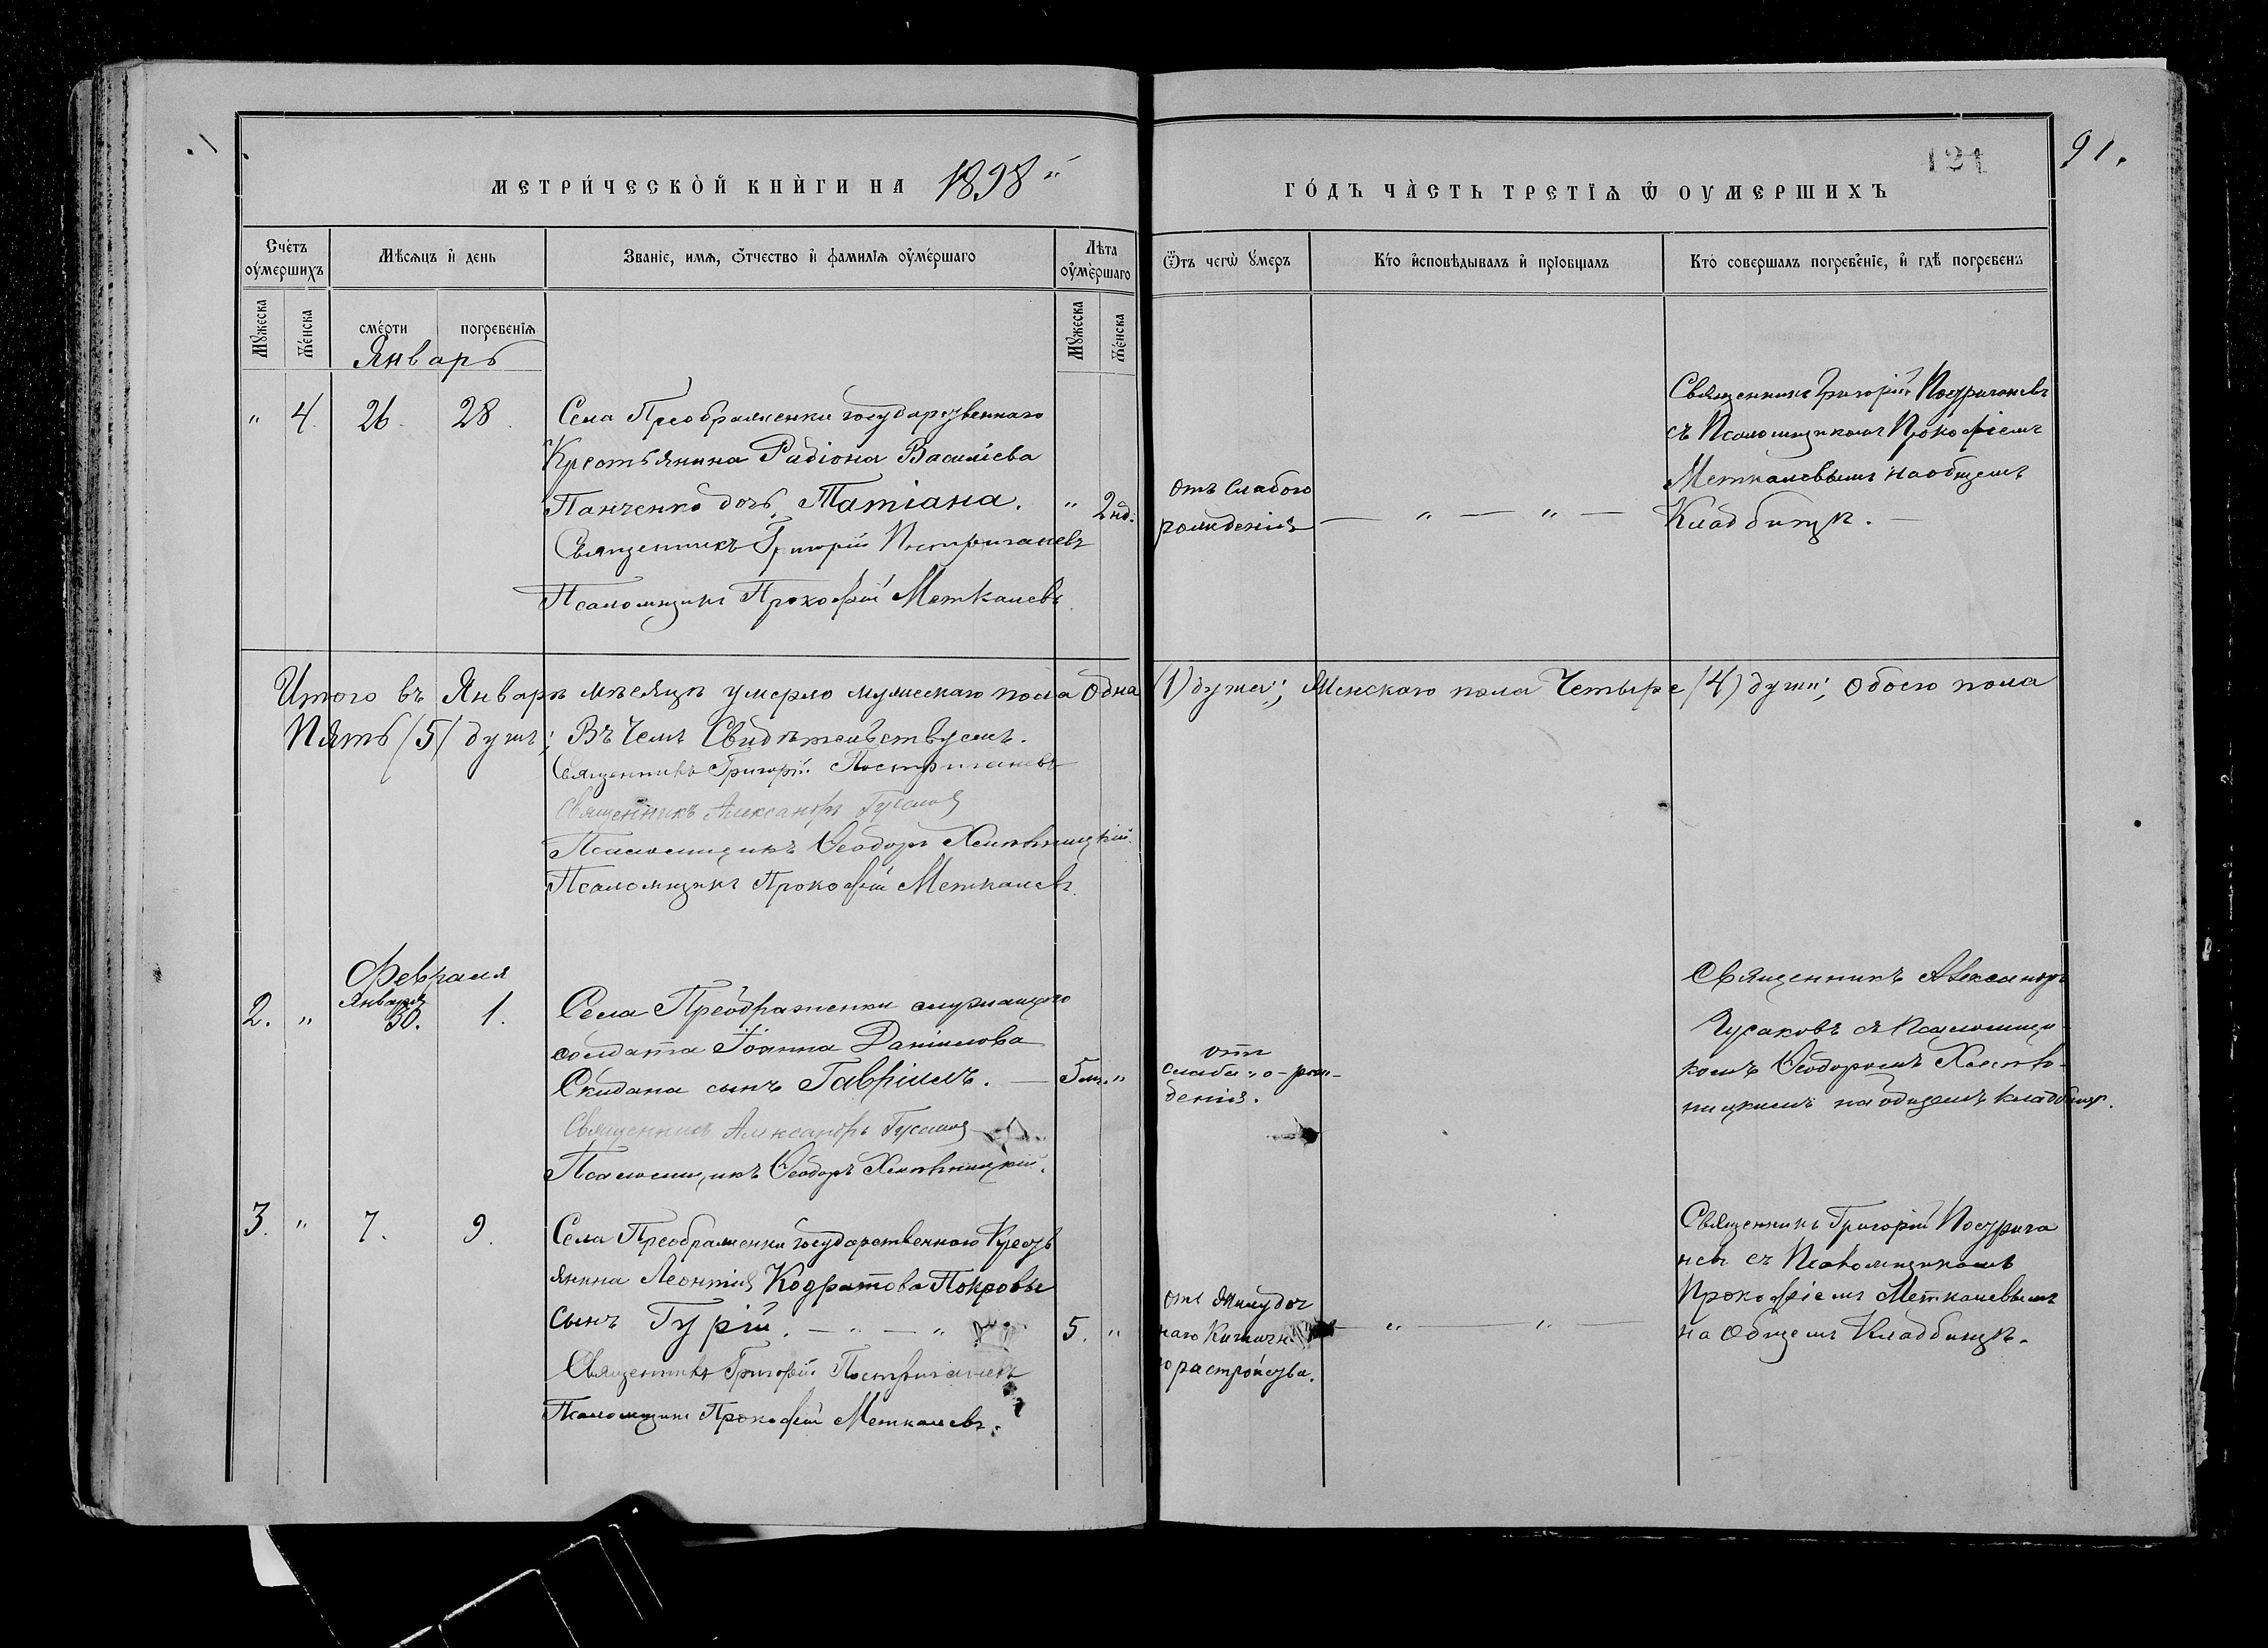 МЕТРИ́ЧЕСКОЙ КНИ́ГИ НА 1898й
121
91.
ГО́ДЪ ЧА́СТЬ ТРЕТІѦ Ѽ ОУМЕРШИХЪ
Сче́тъ оу҆ме́ршихъ
Мѣ́сѧцъ и҆ де́нь
Зва́ніе, и҆́мѧ, о҆́тчество и҆ фами́лїѧ оу҆ме́ршаго
Лѣ́та оу҆ме́ршаго
Ѿ чегѡ̀ у҆́меръ
Кто̀ и҆сповѣ́дывалъ и҆ прїобща́лъ
Кто̀ соверша́лъ погребе́ніе, и҆ гдѣ̀ погребе́нъ
Мꙋ́жеска
Же́нска
сме́рти
погребе́нїѧ
Мꙋ́жеска
Же́нска
Январь
" 4. 26. 28. Села Преображенки государственнаго
Крестьянина Радіона Василіева
Панченко дочь Татіана. " 2 нд.
Священникъ Григорій Постригачевъ
Псаломщикъ Прокофій Меткалевъ
отъ слабого
рожденія — " — " —
Священникъ Григорій Постригачевъ
съ Псаломщикомъ Прокофіемъ
Меткалевымъ на общемъ
Кладбищѣ. —
Итого въ Январѣ мѣсяцѣ умерло мужескаго пола Одна (1) душа; Женскаго пола Четыре (4) души; Обоего пола
Пять (5) душъ; Въ чемъ Свидѣтельствуемъ.
Священникъ Григорій Постригачевъ
Священникъ Александръ Гусаков
Псаломщикъ Ѳеодоръ
Псаломщикъ Прокофій Меткалевъ.
Февраля
2. " Января 30. 1. Села Преображенки служащаго
солдата Іоанна Даніилова
Скидана сынъ Гавріилъ. — 5 м. "
Священникъ Александръ Гусаков
Псаломщикъ Ѳеодоръ
отъ
слабаго рож-
денія.
Священникъ Александръ
Гусаковъ съ Псаломщи-
комъ Ѳеодоромъ
на общемъ кладбищѣ.
3. " 7. 9. Села Преображенки государственнаго Кресть
янина Леонтія Кодратова Покровы
сынъ Гурій. — " — " 5. "
Священникъ Григорій Постригачевъ
Псаломщикъ Прокофій Меткалевъ.
отъ Жилудоч
наго
растройства. — " — " —
Священникъ Григорій Пострига
чевъ съ Псаломщикомъ
Прокофіемъ Меткалевымъ
на Общемъ Кладбищѣ.